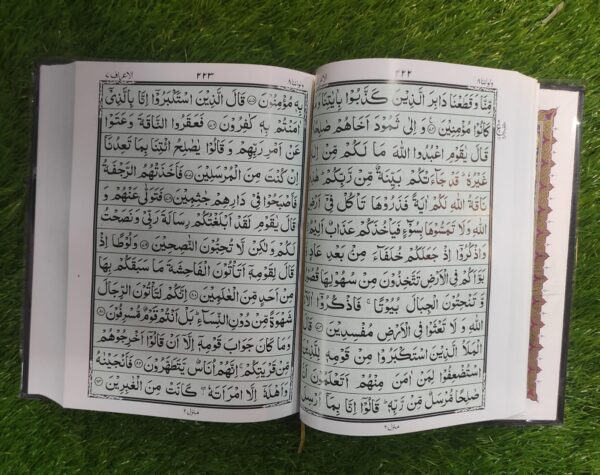 ولواننا ٨ ٢٢٢
مِّنَّا وَقَطَعْنَا دَابِرَ الَّذِيْنَ كَذَّبُوْا بِاٰيٰتِنَا وَمَا
كَانُوْا مُؤْمِنِيْنَ ۷۲ وَ اِلٰى ثَمُوْدَ اَخَاهُمْ صٰلِحًا
قَالَ يٰقَوْمِ اعْبُدُوا اللّٰهَ مَا لَكُمْ مِّنْ اِلٰهٍ
غَيْرُهٗ ؕ قَدْ جَآءَتْكُمْ بَيِّنَةٌ مِّنْ رَّبِّكُمْ ؕ هٰذِهٖ
نَاقَةُ اللّٰهِ لَكُمْ اٰيَةً فَذَرُوْهَا تَاْكُلْ فِيْٓ اَرْضِ
اللّٰهِ وَلَا تَمَسُّوْهَا بِسُوْٓءٍ فَيَاْخُذَكُمْ عَذَابٌ اَلِيْمٌ
وَاذْكُرُوْٓا اِذْ جَعَلَكُمْ خُلَفَآءَ مِنْۢ بَعْدِ عَادٍ وَّ
بَوَّاَكُمْ فِي الْاَرْضِ تَتَّخِذُوْنَ مِنْ سُهُوْلِهَا قُصُوْرًا
وَّ تَنْحِتُوْنَ الْجِبَالَ بُيُوْتًا ۚ فَاذْكُرُوْٓا اٰلَآءَ
اللّٰهِ وَ لَا تَعْثَوْا فِي الْاَرْضِ مُفْسِدِيْنَ ۷۴ قَالَ
الْمَلَاُ الَّذِيْنَ اسْتَكْبَرُوْا مِنْ قَوْمِهٖ لِلَّذِيْنَ
اسْتُضْعِفُوْا لِمَنْ اٰمَنَ مِنْهُمْ اَتَعْلَمُوْنَ اَنَّ
صٰلِحًا مُّرْسَلٌ مِّنْ رَّبِّهٖ ؕ قَالُوْٓا اِنَّا بِمَآ اُرْسِلَ
منزل ٢
ولواننا ٨ ٢٢٣ الاعراف ٧
بِهٖ مُؤْمِنُوْنَ ۷۵ قَالَ الَّذِيْنَ اسْتَكْبَرُوْٓا اِنَّا بِالَّذِيْٓ
اٰمَنْتُمْ بِهٖ كٰفِرُوْنَ ۷۶ فَعَقَرُوا النَّاقَةَ وَعَتَوْا
عَنْ اَمْرِ رَبِّهِمْ وَ قَالُوْا يٰصٰلِحُ ائْتِنَا بِمَا تَعِدُنَآ
اِنْ كُنْتَ مِنَ الْمُرْسَلِيْنَ ۷۷ فَاَخَذَتْهُمُ الرَّجْفَةُ
فَاَصْبَحُوْا فِيْ دَارِهِمْ جٰثِمِيْنَ ۷۸ فَتَوَلّٰى عَنْهُمْ وَ
قَالَ يٰقَوْمِ لَقَدْ اَبْلَغْتُكُمْ رِسَالَةَ رَبِّيْ وَ نَصَحْتُ
لَكُمْ وَلٰكِنْ لَّا تُحِبُّوْنَ النّٰصِحِيْنَ ۷۹ وَلُوْطًا اِذْ
قَالَ لِقَوْمِهٖٓ اَتَاْتُوْنَ الْفَاحِشَةَ مَا سَبَقَكُمْ بِهَا
مِنْ اَحَدٍ مِّنَ الْعٰلَمِيْنَ ۸۰ اِنَّكُمْ لَتَاْتُوْنَ الرِّجَالَ
شَهْوَةً مِّنْ دُوْنِ النِّسَآءِ ؕ بَلْ اَنْتُمْ قَوْمٌ مُّسْرِفُوْنَ ۸۱
وَمَا كَانَ جَوَابَ قَوْمِهٖٓ اِلَّآ اَنْ قَالُوْٓا اَخْرِجُوْهُمْ
مِّنْ قَرْيَتِكُمْ ۚ اِنَّهُمْ اُنَاسٌ يَّتَطَهَّرُوْنَ ۸۲ فَاَنْجَيْنٰهُ
وَاَهْلَهٗٓ اِلَّا امْرَاَتَهٗ ۖ كَانَتْ مِنَ الْغٰبِرِيْنَ ۸۳
منزل ٢